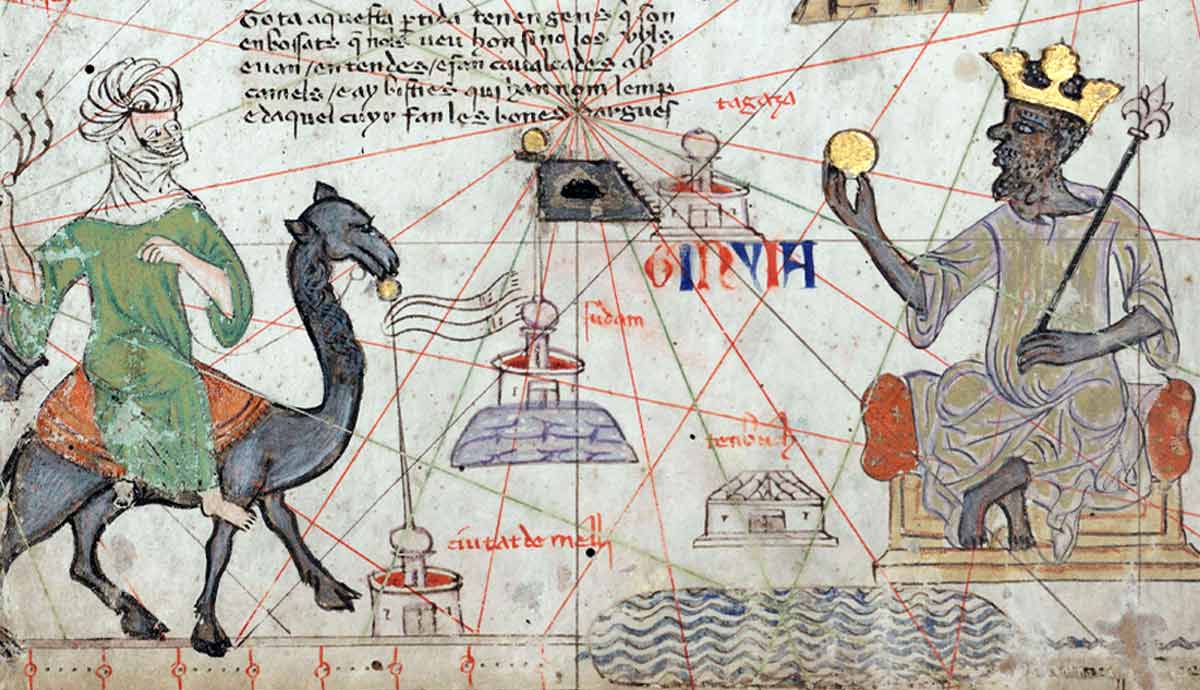 Tota aquesta ptida tenen gens q son
enbossats q nols veu hom sino los uyls
e van / en tendes / e fan cavalcades ab
camels / e ay bisties qui han nom lemp
e daquel cuyr fan les bones dargues
tagaza
GINYIA
sudam
tenbuch
ciutat de melli